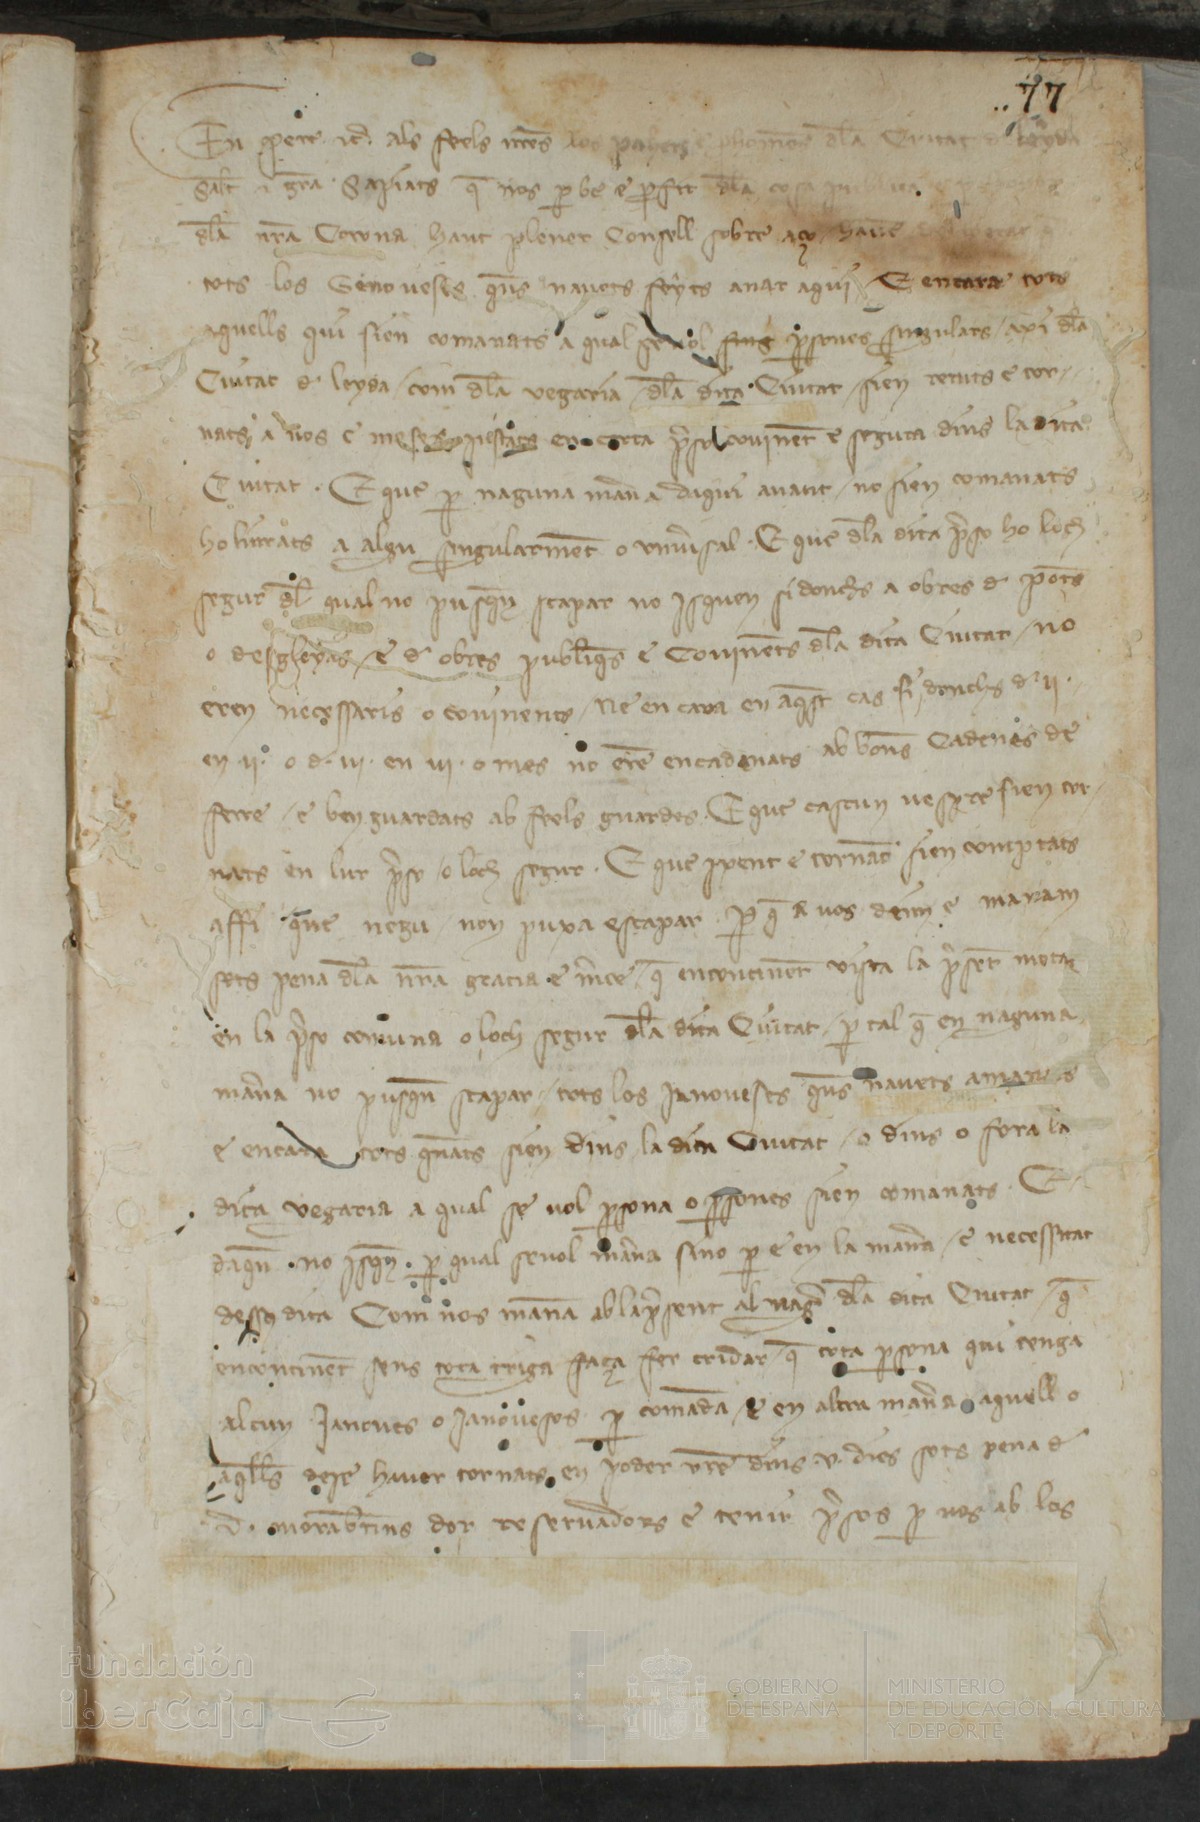 77
En Pere ⁊c̃. als feels nr̃es los pahers e phomẽs dl̃a Ciutat d' leyda
Salt̃ ⁊ gr̃a. Sapiats q̃ nos p be e pfit dl̃a cosa publica
dl̃a nr̃a Corona haut plener Consell sobre aço havẽ
tots los Genoveses q̃ns navets feyts anar aqui / E encara tots
aquells qui sien comanats a qual se vol psones singulars / axi dl̃a
Ciutat d' leyda / com dl̃a vegaria / dl̃a dita Ciutat / sien retuts e tor-
nats a vos e meses en certa p̃so covinent̃ e segura dins la dita
Ciutat. E que p naguna man̄a daqui avant / no sien comanats
ho liurats a algu singularment̃ o uniṽsal. E que dl̃a dita p̃so ho loch
segur dl̃ qual no pusq̃n scapar no isquen si donchs a obres d' ponts
o desgleyas / e d' obres publiq̃s e Covinents dl̃a dita Ciutat / no
eren necessaris o covinents / Ne encara en aq̃st cas si donchs d' .ii.
en .ii. o d' .iii. en .iii. o mes no erẽ encadenats ab bons Cadenes de
ferre / e ben guardats ab feels guardes. E que cascun vespre sien tor-
nats en lur p̃so / o loch segur. E que ixent e tornant sien comptats
affi que negu non puxa escapar. P q̃ a vos deim e manam
sots pena dl̃a nr̃a gracia e m̃ce / q̃ encontinent̃ vista la p̃sent metats
en la p̃so comuna o loch segur dl̃a dita Ciutat / p tal q̃ en naguna
man̄a no pusq̃n scapar / tots los Janoveses q̃ns navets amanats
e encara tots quants sien dins la dita Ciutat / o dins o fora la
dita vegaria a qual se vol psona o psones sien comanats. E
daq̃n no isq̃n p qual sevol man̄a sino p e en la man̄a / e necessitat
dessus dita Com nos manã ab la p̃sent al veguer dl̃a dita Ciutat / q̃
encontinent̃ sens tota triga faça fer cridar / q̃ tota psona qui tenga
alcun Janoves o Janovesos p comanda / e en altra man̄a aquell o
aq̃lls deje haver tornats en poder vr̃e dins .v. dies sots pena d'
.D. morabatins dor reservadors e tenir p̃sos p nos ab los
Fundación
iberCaja
GOBIERNO
DE ESPAÑA
MINISTERIO
DE EDUCACIÓN, CULTURA
Y DEPORTE